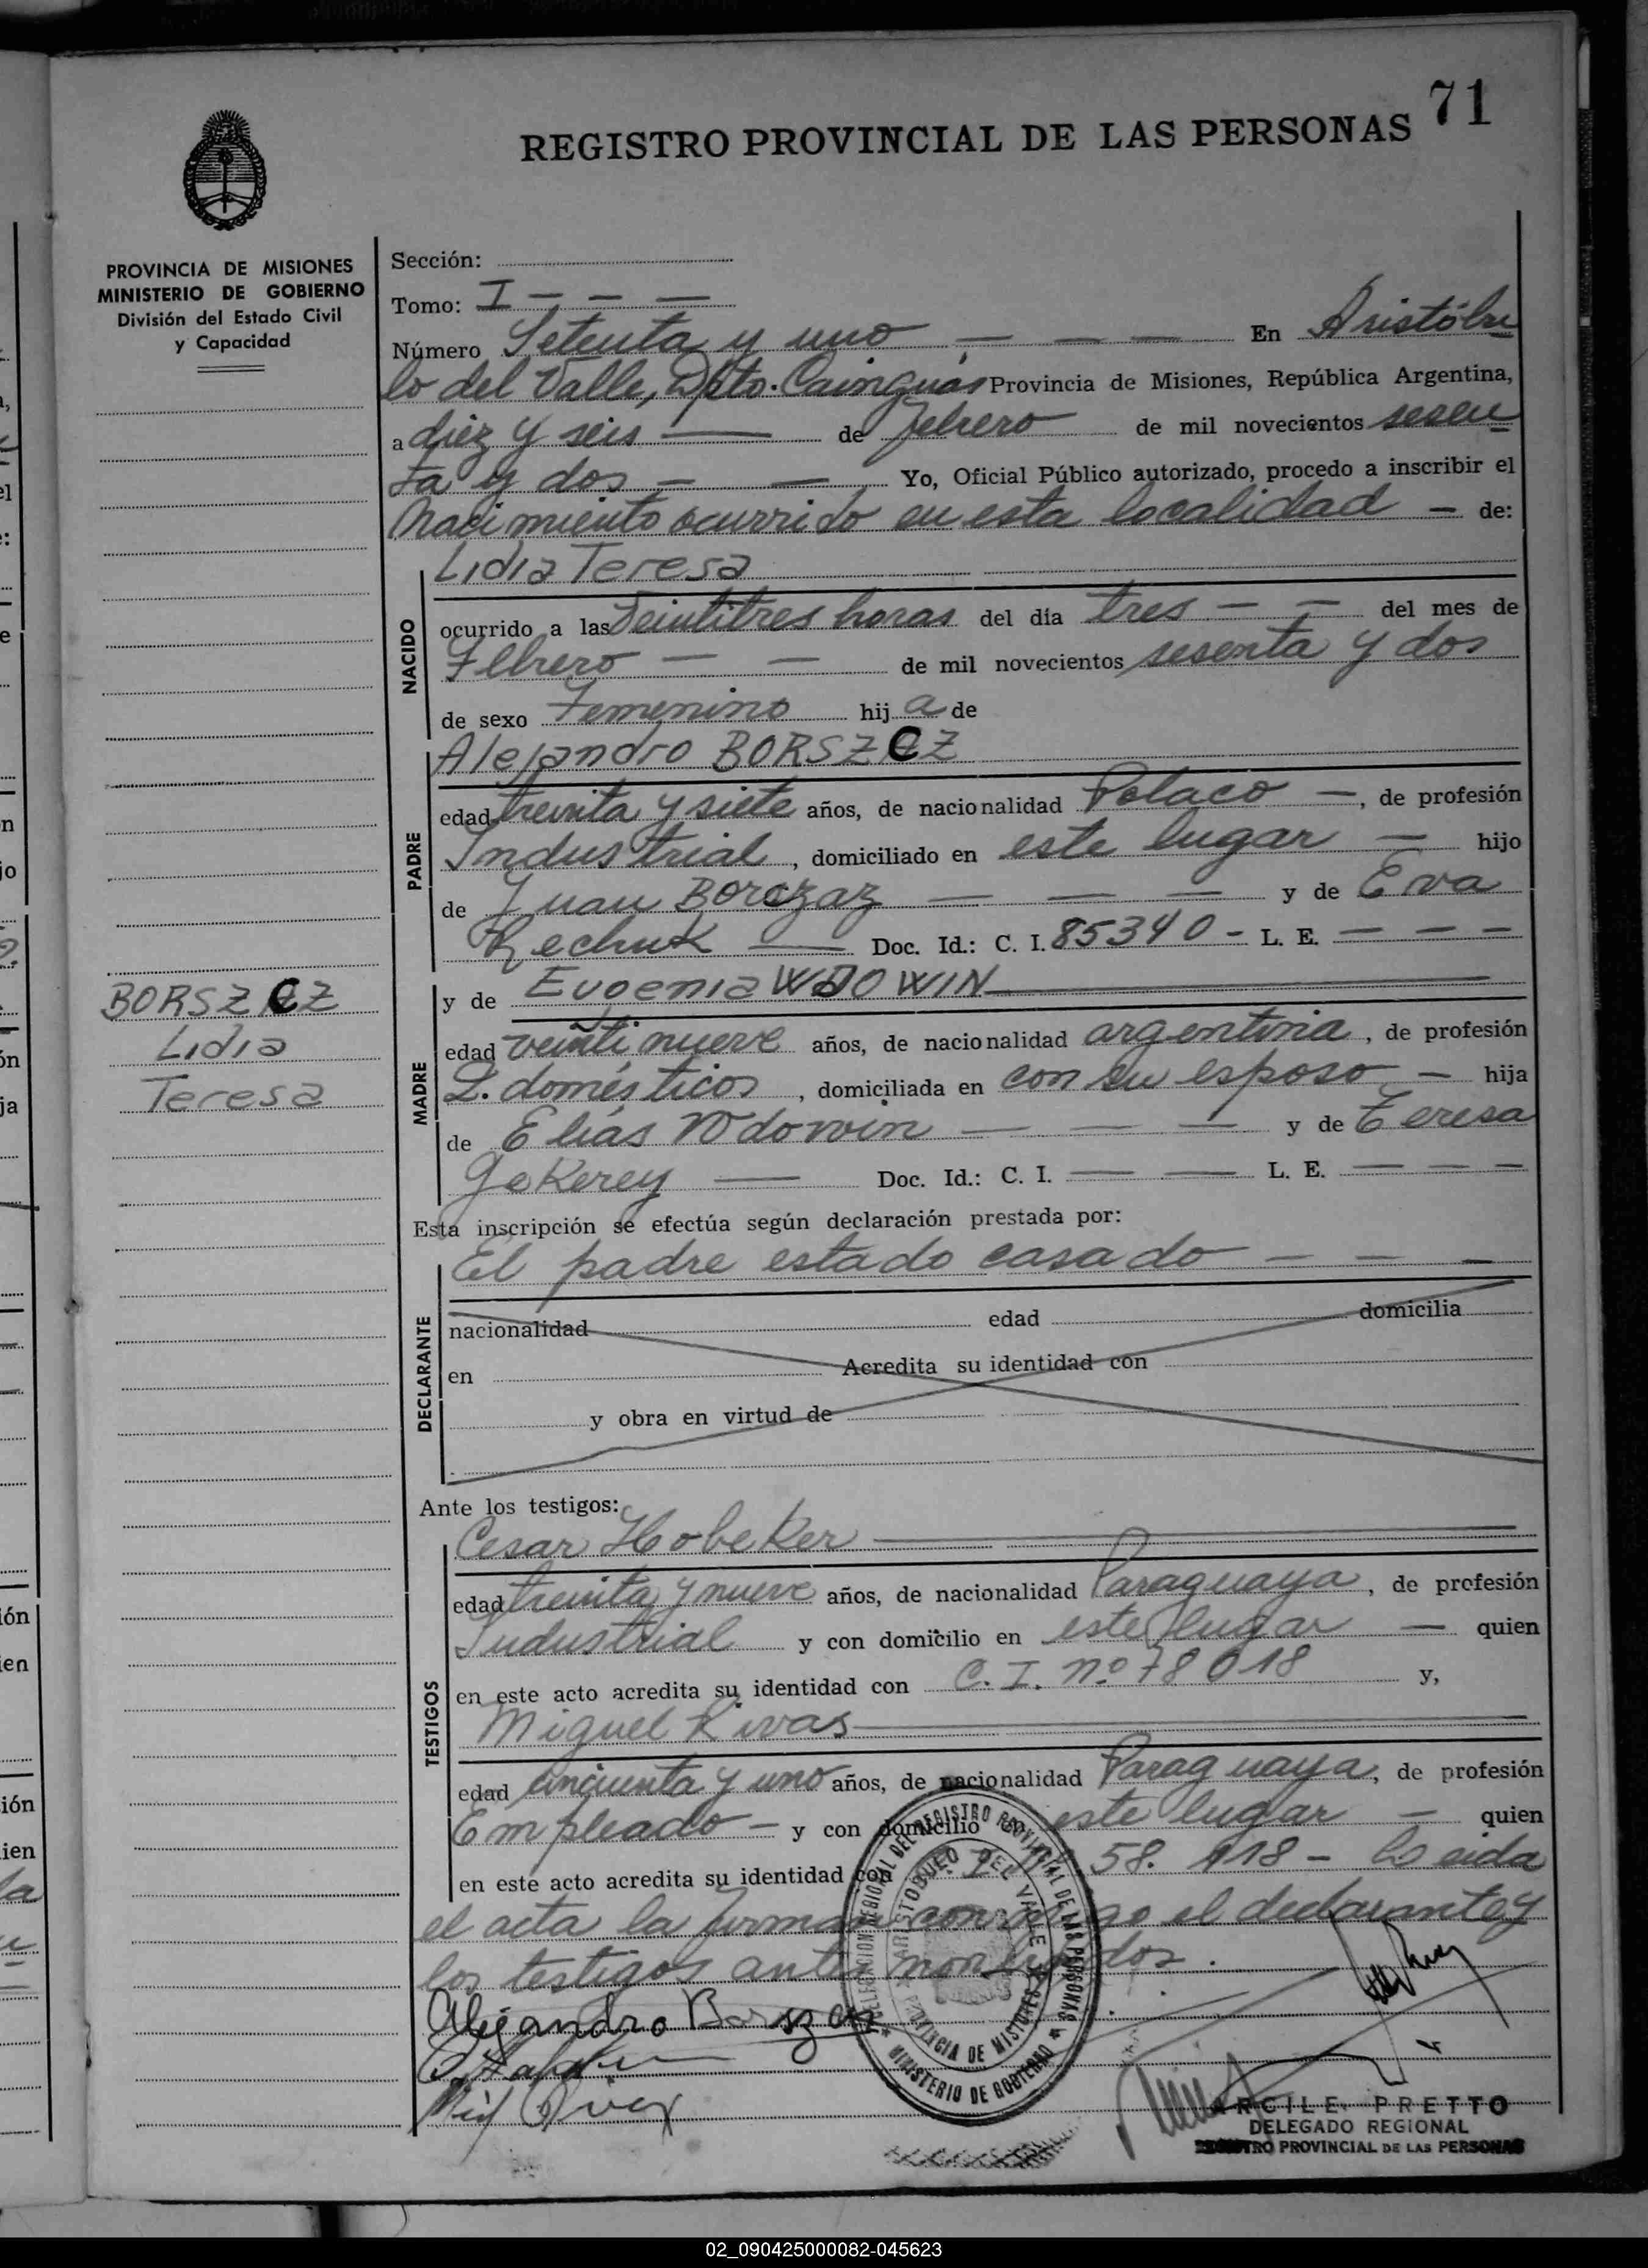 71
REGISTRO PROVINCIAL DE LAS PERSONAS
PROVINCIA DE MISIONES
MINISTERIO DE GOBIERNO
División del Estado Civil
y Capacidad
Sección:
Tomo: I — — —
Número Setenta y uno — — — En Aristóbu
lo del Valle, Dpto. Cainguás Provincia de Misiones, República Argentina,
a diez y seis — de febrero de mil novecientos sesen
ta y dos — — Yo, Oficial Público autorizado, procedo a inscribir el
Nacimiento ocurrido en esta localidad — de:
Lidia Teresa
NACIDO
ocurrido a las Veintitres horas del día tres — — del mes de
Febrero — — de mil novecientos sesenta y dos
de sexo Femenino hija de
Alejandro BORSZCZ
PADRE
edad treinta y siete años, de nacionalidad Polaco —, de profesión
Industrial, domiciliado en este lugar — hijo
de Juan Borszaz — — — y de Eva
Rechuk — Doc. Id.: C. I. 85340 - L. E. — — —
y de Eugenia WDOWIN
BORSZCZ
Lidia
Teresa
MADRE
edad veinti nueve años, de nacionalidad argentina, de profesión
Q. domésticos, domiciliada en con su esposo — hija
de Elías Wdowin — — — y de Teresa
Gekerey — Doc. Id.: C. I. — — L. E. — — —
Esta inscripción se efectúa según declaración prestada por:
El padre estado casado — — —
DECLARANTE
nacionalidad edad domicilia
en Acredita su identidad con
y obra en virtud de
Ante los testigos:
Cesar Hobeker
TESTIGOS
edad treinta y nueve años, de nacionalidad Paraguaya, de profesión
Industrial y con domicilio en este lugar — quien
en este acto acredita su identidad con C. I. Nº 78018 y,
Miguel Rivas
edad cincuenta y uno años, de nacionalidad Paraguaya, de profesión
Empleado — y con domicilio en este lugar — quien
en este acto acredita su identidad con 58. 118 - Leida
el acta la firman conmigo el declarante y
los testigos ante nombrados.
Alejandro Borszcz
DELEGACION REGIONAL DEL REGISTRO PROVINCIAL DE LAS PERSONAS
ARISTOBULO DEL VALLE
PROVINCIA DE MISIONES
MINISTERIO DE GOBIERNO
ARCILE PRETTO
DELEGADO REGIONAL
REGISTRO PROVINCIAL DE LAS PERSONAS
02_090425000082-045623